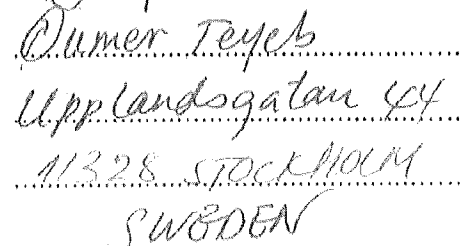 Oumer Teyeb
Upplandsgatan 44
11328 STOCKHOLM
SWEDEN